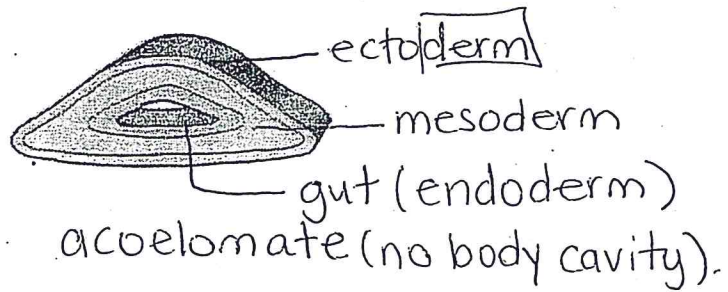 ectoderm
mesoderm
gut (endoderm)
acoelomate (no body cavity).